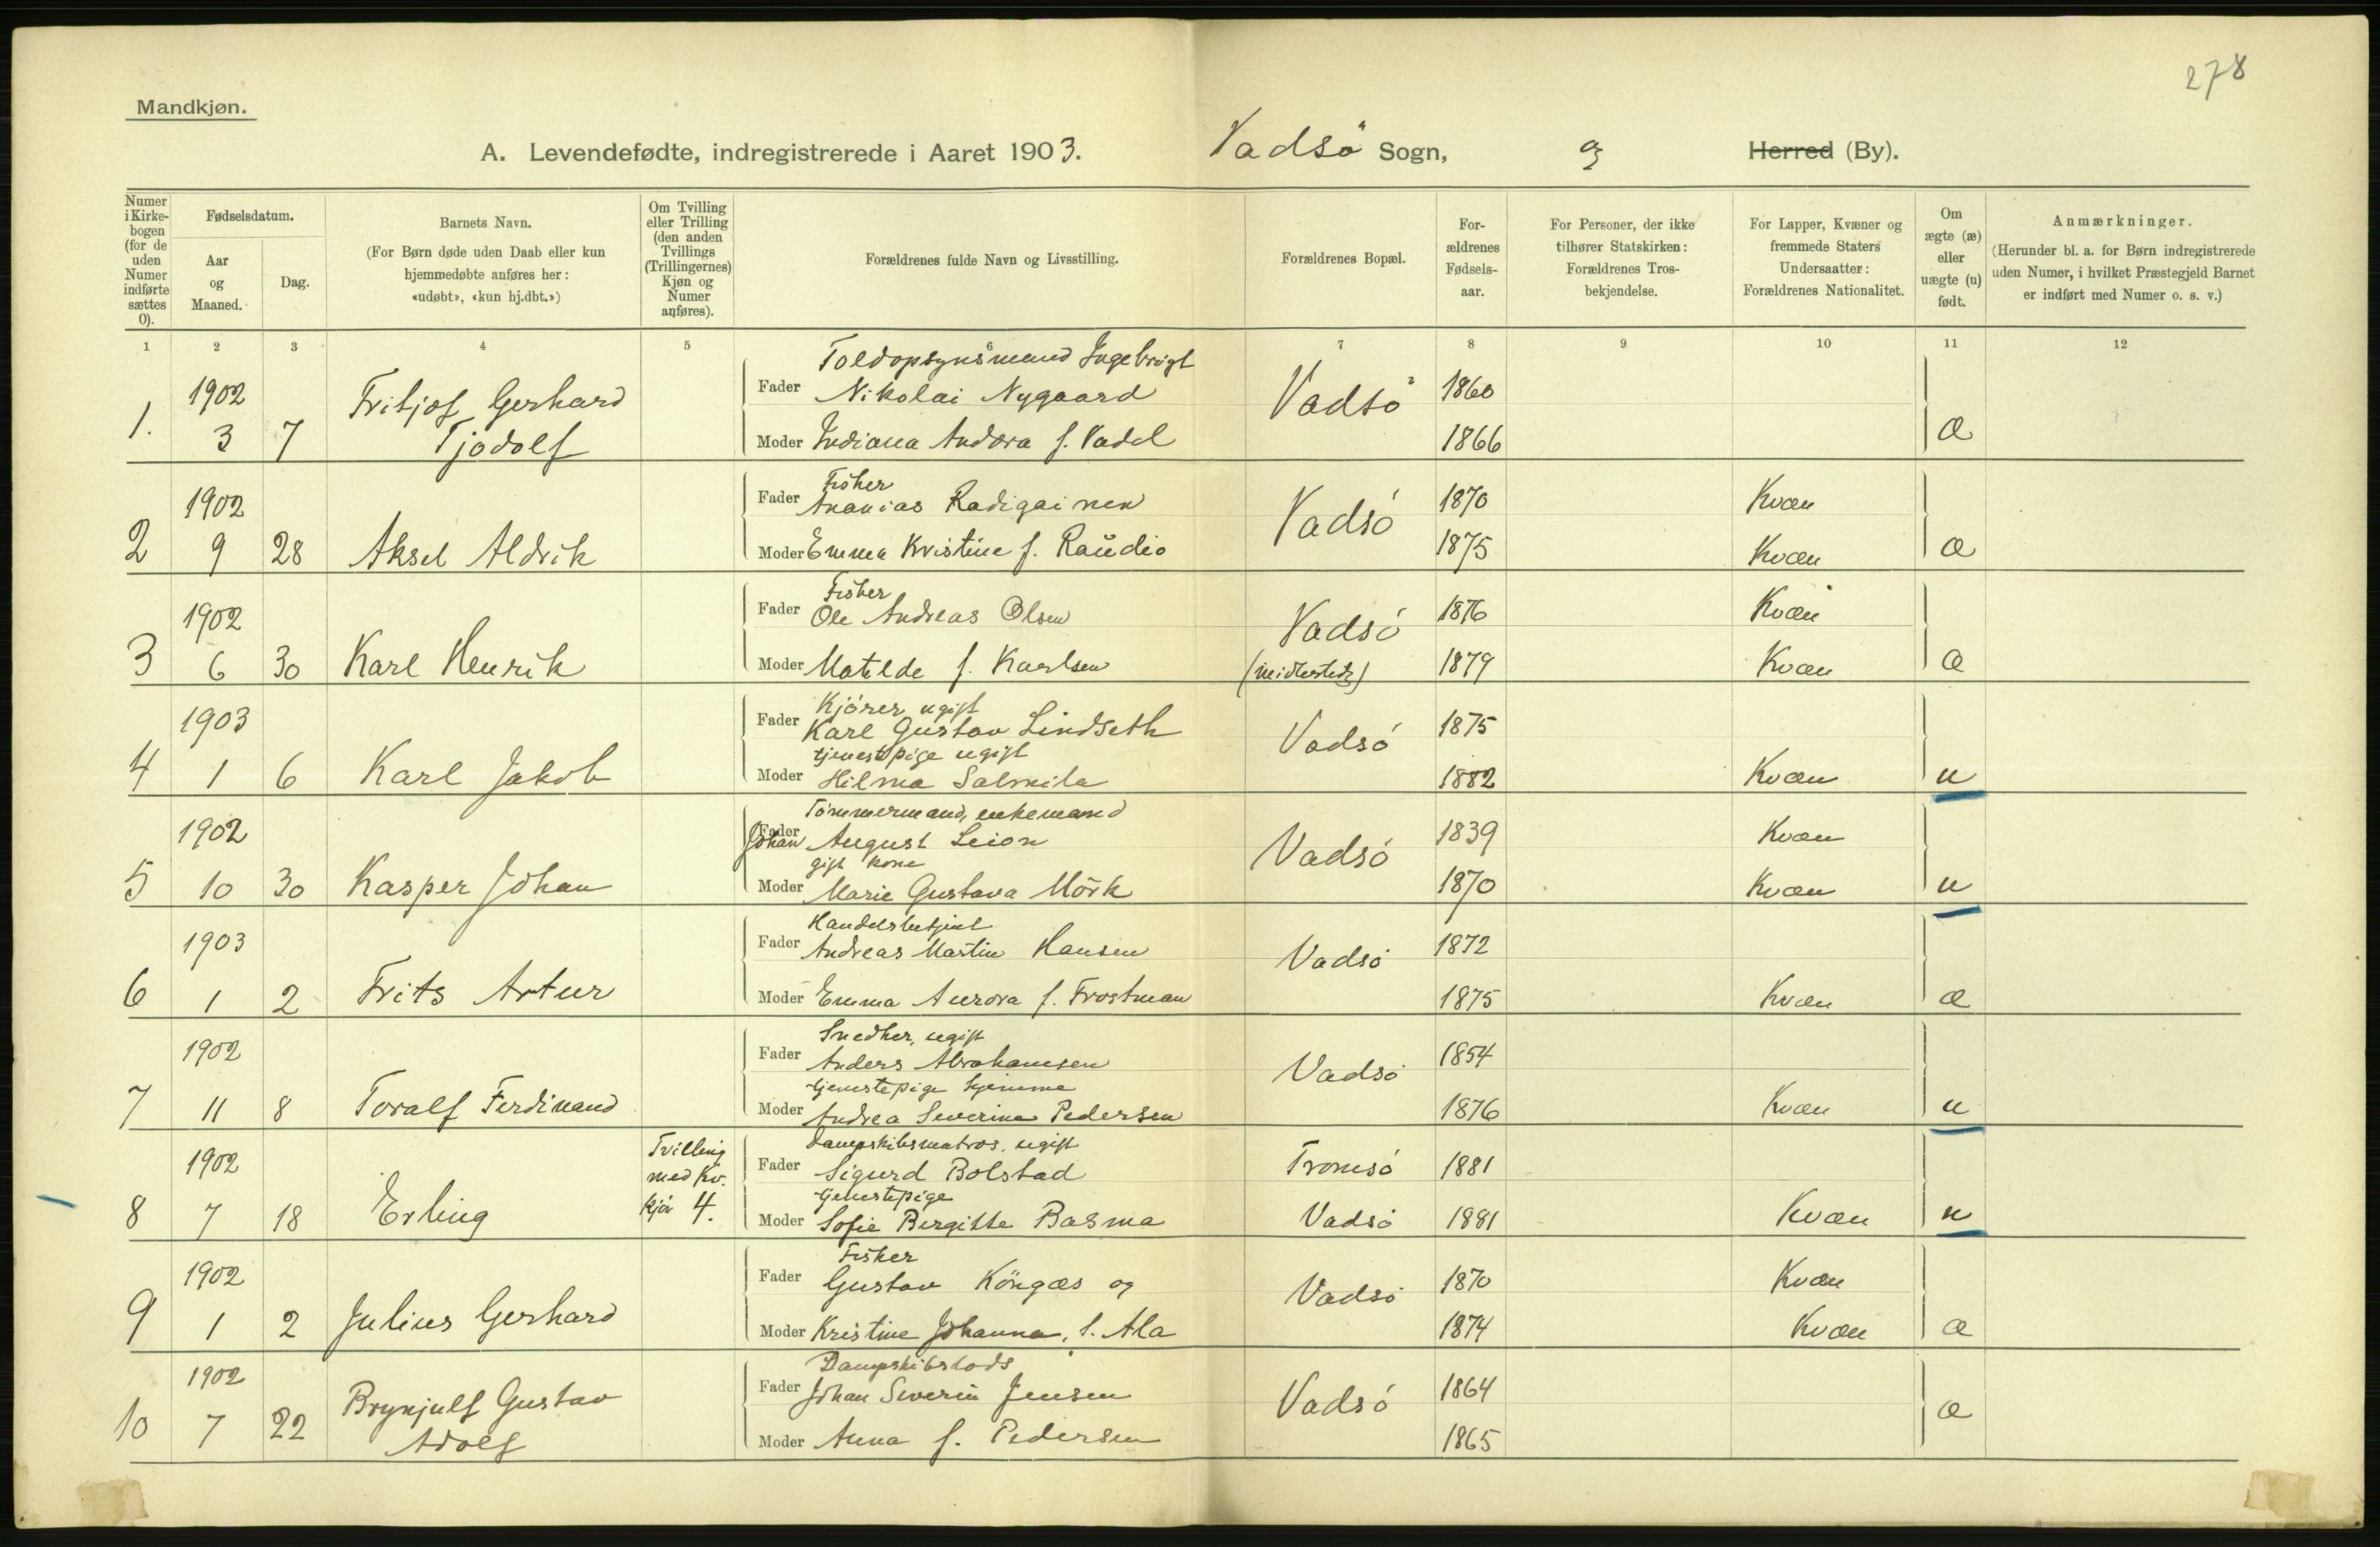 278
Mandkjøn.
A. Levendefødte, indregistrerede i Aaret 1903. Vadsö Sogn, og Herred (By).
Numer i Kirkebogen (for de uden Numer indførte sættes 0).
Fødselsdatum.
Aar og Maaned.
Dag.
Barnets Navn.
(For Børn døde uden Daab eller kun hjemmedøbte anføres her: «udøbt», «kun hj.dbt.»)
Om Tvilling eller Trilling (den anden Tvillings (Trillingernes) Kjøn og Numer anføres).
Forældrenes fulde Navn og Livsstilling.
Forældrenes Bopæl.
Forældrenes Fødselsaar.
For Personer, der ikke tilhører Statskirken: Forældrenes Trosbekjendelse.
For Lapper, Kvæner og fremmede Staters Undersaatter: Forældrenes Nationalitet.
Om ægte (æ) eller uægte (u) født.
Anmærkninger.
(Herunder bl. a. for Børn indregistrerede uden Numer, i hvilket Præstegjeld Barnet er indført med Numer o. s. v.)
1 2 3 4 5 6 7 8 9 10 11 12
1. 1902 3 7 Fritjof Gerhard Tjodolf
Toldopsynsmand Ingebrigt
Fader Nikolai Nygaard Vadsö 1860
Moder Indiana Andora f. Vadel 1866 æ
2 1902 9 28 Aksel Aldrik
Fisker
Fader Ananias Radigainen Vadsö 1870 Kvæn
Moder Emma Kristine f. Raudio 1875 Kvæn æ
3 1902 6 30 Karl Henrik
Fisker
Fader Ole Andreas Olsen Vadsö 1876 Kvæn
Moder Matilde f. Karlsen (midlertidg) 1879 Kvæn æ
4 1903 1 6 Karl Jakob
Kjörer, ugift
Fader Karl Gustav Lindseth Vadsö 1875
tjenestpige ugift
Moder Hilma Salmila 1882 Kvæn u
5 1902 10 30 Kasper Johan
Tömmermand, enkemand
Fader Johan August Leion Vadsö 1839 Kvæn
gift kone
Moder Marie Gustava Mörk 1870 Kvæn u
6 1903 1 2 Frits Artur
Handelsbetjent
Fader Andreas Martin Hansen Vadsö 1872
Moder Emma Aurora f. Frostman 1875 Kvæn æ
7 1902 11 8 Toralf Ferdinand
Snedker, ugift
Fader Anders Abrahamsen Vadsö 1854
tjenestepige hjemme
Moder Andrea Severine Pedersen 1876 Kvæn u
8 1902 7 18 Erling Tvilling med Kv. kjön 4.
Dampskibsmatros, ugift
Fader Sigurd Bolstad Tromsö 1881
tjenestepige
Moder Sofie Bergitte Basma Vadsö 1881 Kvæn u
9 1902 1 2 Julius Gerhard
Fisker
Fader Gustav Köngæs og Vadsö 1870 Kvæn
Moder Kristine Johanna, f. Ala 1874 Kvæn æ
10 1902 7 22 Brynjulf Gustav Adolf
Dampskibslods
Fader Johan Severin Jensen Vadsö 1864
Moder Anna f. Pedersen 1865 æ